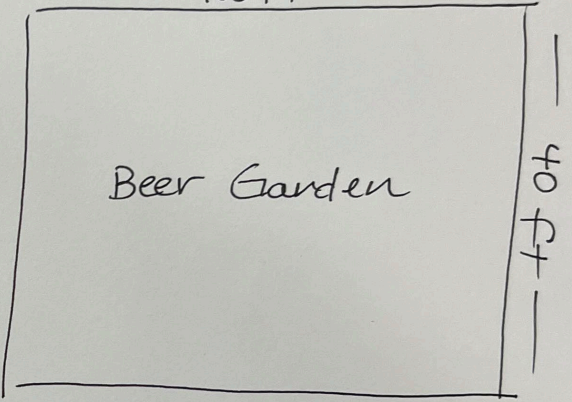 Beer Garden
40 ft